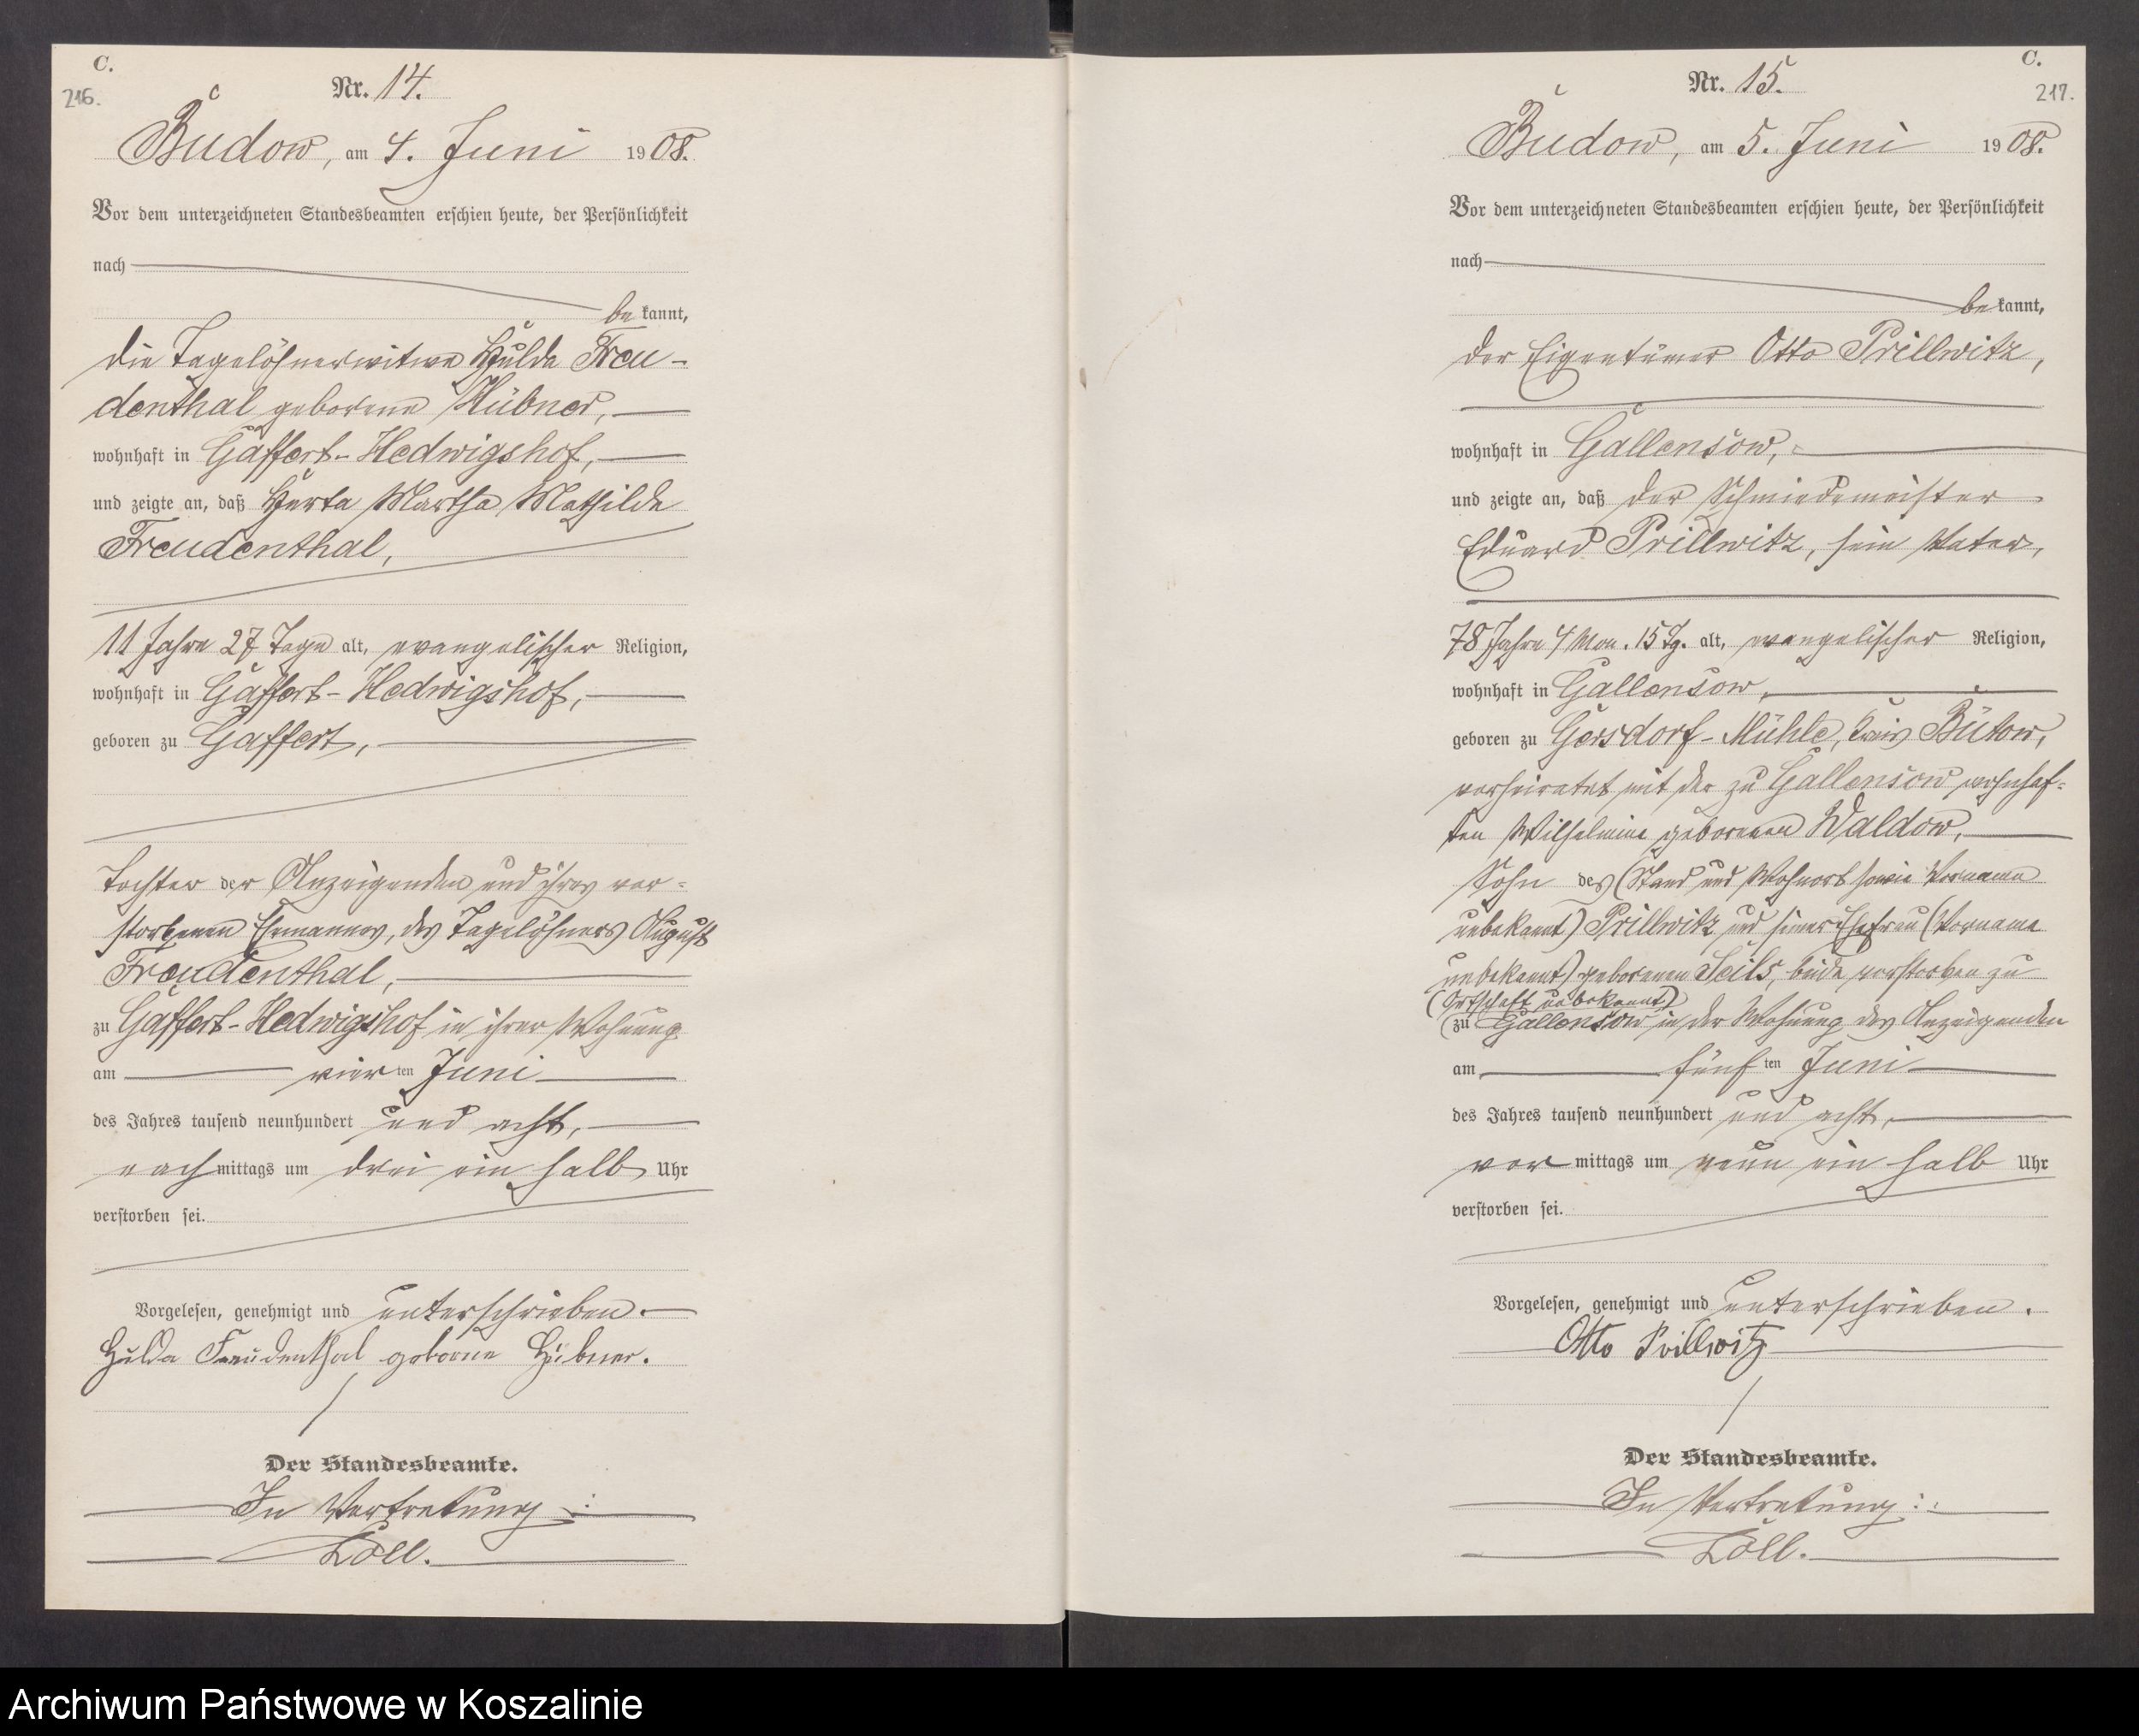 C.
216.
Nr. 14.
Budow, am 4. Juni 1908.
Vor dem unterzeichneten Standesbeamten erschien heute, der Persönlichkeit
nach
be kannt,
die Tagelöhnerwitwe Hulda Freu-
denthal geborene Hübner,
wohnhaft in Gaffert-Hedwigshof,
und zeigte an, daß Herta Martha Mathilde
Freudenthal,
11 Jahre 27 Tage alt, evangelischer Religion,
wohnhaft in Gaffert-Hedwigshof,
geboren zu Gaffert,
Tochter der Anzeigenden und ihres ver-
storbenen Ehemannes, des Tagelöhners August
Freudenthal,
zu Gaffert-Hedwigshof in ihrer Wohnung
am vier ten Juni
des Jahres tausend neunhundert und acht,
nach mittags um drei ein halb Uhr
verstorben sei.
Vorgelesen, genehmigt und unterschrieben.
Hulda Freudenthal geborne Hübner.
Der Standesbeamte.
In Vertretung:
Löll.
C.
217.
Nr. 15.
Budow, am 5. Juni 1908.
Vor dem unterzeichneten Standesbeamten erschien heute, der Persönlichkeit
nach
be kannt,
der Eigentümer Otto Prillwitz,
wohnhaft in Gallensow,
und zeigte an, daß der Schmiedemeister
Eduard Prillwitz, sein Vater,
78 Jahre 4 Mon. 15 Tg. alt, evangelischer Religion,
wohnhaft in Gallensow,
geboren zu Gersdorf-Mühle, Kreis Bütow,
verheiratet mit der zu Gallensow wohnhaf-
ten Wilhelmine geborenen Waldow,
Sohn des (Stand und Wohnort sowie Vorname
unbekannt) Prillwitz und seiner Ehefrau (Vorname
unbekannt) geborenen Seils, beide verstorben zu
(Ortschaft unbekannt)
zu Gallensow in der Wohnung des Anzeigenden
am fünf ten Juni
des Jahres tausend neunhundert und acht,
vor mittags um neun ein halb Uhr
verstorben sei.
Vorgelesen, genehmigt und unterschrieben.
Otto Prillwitz
Der Standesbeamte.
In Vertretung:
Löll.
Archiwum Państwowe w Koszalinie